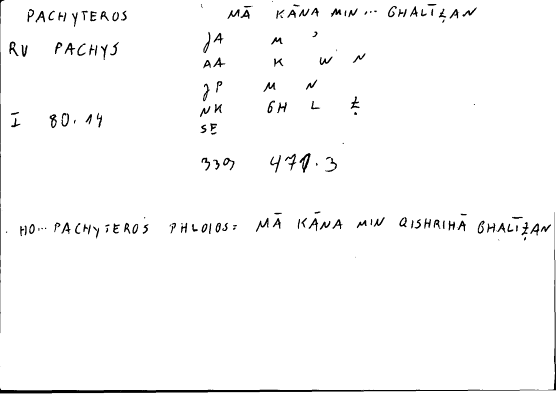 PACHYTEROS MĀ KĀNA MIN ... GHALĪẒAN
RV PACHYS JA M ʾ
AA K W N
JP M N
I 80.14 NK GH L Ẓ
SE
3309 471.3
HO... PACHYTEROS PHLOIOS: MĀ KĀNA MIN QISHRIHĀ GHALĪẒAN